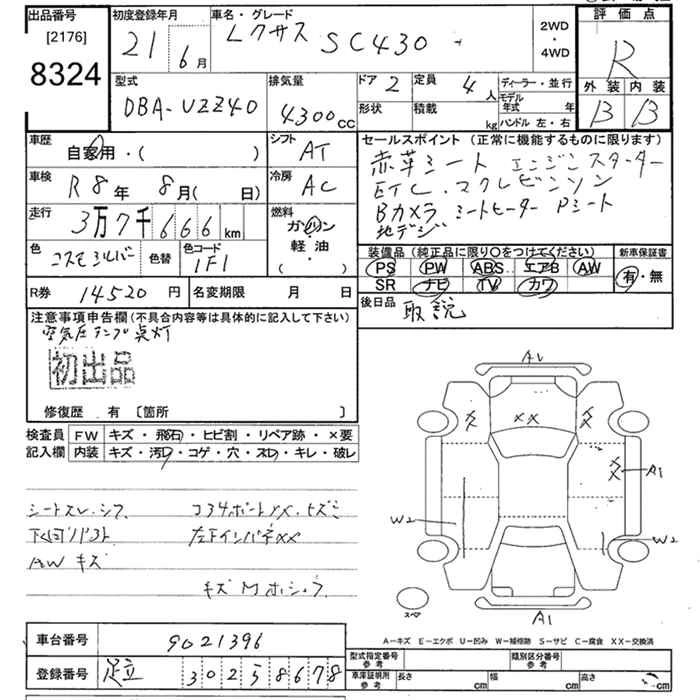 出品番号
[2176]
8324
初度登録年月
21 6月
車名・グレード
レクサス SC430
2WD
・
4WD
評価点
R
外装 内装
B B
型式
DBA-UZZ40
排気量
4300cc
ドア 2
定員 4人
形状
積載 kg
ディーラー・並行
モデル年式 年
ハンドル 左・右
車歴
自家用・( )
シフト
AT
車検
R8年 8月( 日)
冷房
AC
走行
3万7千666km
燃料
ガソリン
軽油
( ・ )
色
コスモシルバー
色替
色コード
1F1
セールスポイント (正常に機能するものに限ります)
赤革シート エンジンスターター
ETC.マクレビンソン
Bカメラ シートヒーター Pシート
地デジ
装備品 (純正品に限り○をつけてください)
PS PW ABS エアB AW
SR ナビ TV カワ
新車保証書
有・無
R券 14520円
名変期限 月 日
後日品
取説
注意事項申告欄(不具合内容等は具体的に記入して下さい)
空気圧ランプ点灯
初出品
修復歴 有 〔箇所 〕
検査員記入欄
FW キズ・飛石・ヒビ割・リペア跡・×要
内装 キズ・汚レ・コゲ・穴・スレ・キレ・破レ
シートスレ.シワ
コア4ポートXX.ヒズミ
下回リ
左下インパネXX
AW キズ
キズ
A1
XX
XX
XX
XX
A1
W2
W2
A1
スペア
A−キズ E−エクボ U−凹み W−補修跡 S−サビ C−腐食 XX−交換済
車台番号 9021396
登録番号 足立 302 5 8678
型式指定番号 参考
類別区分番号 参考
車庫証明所 参考
長さ cm
幅 cm
高さ cm